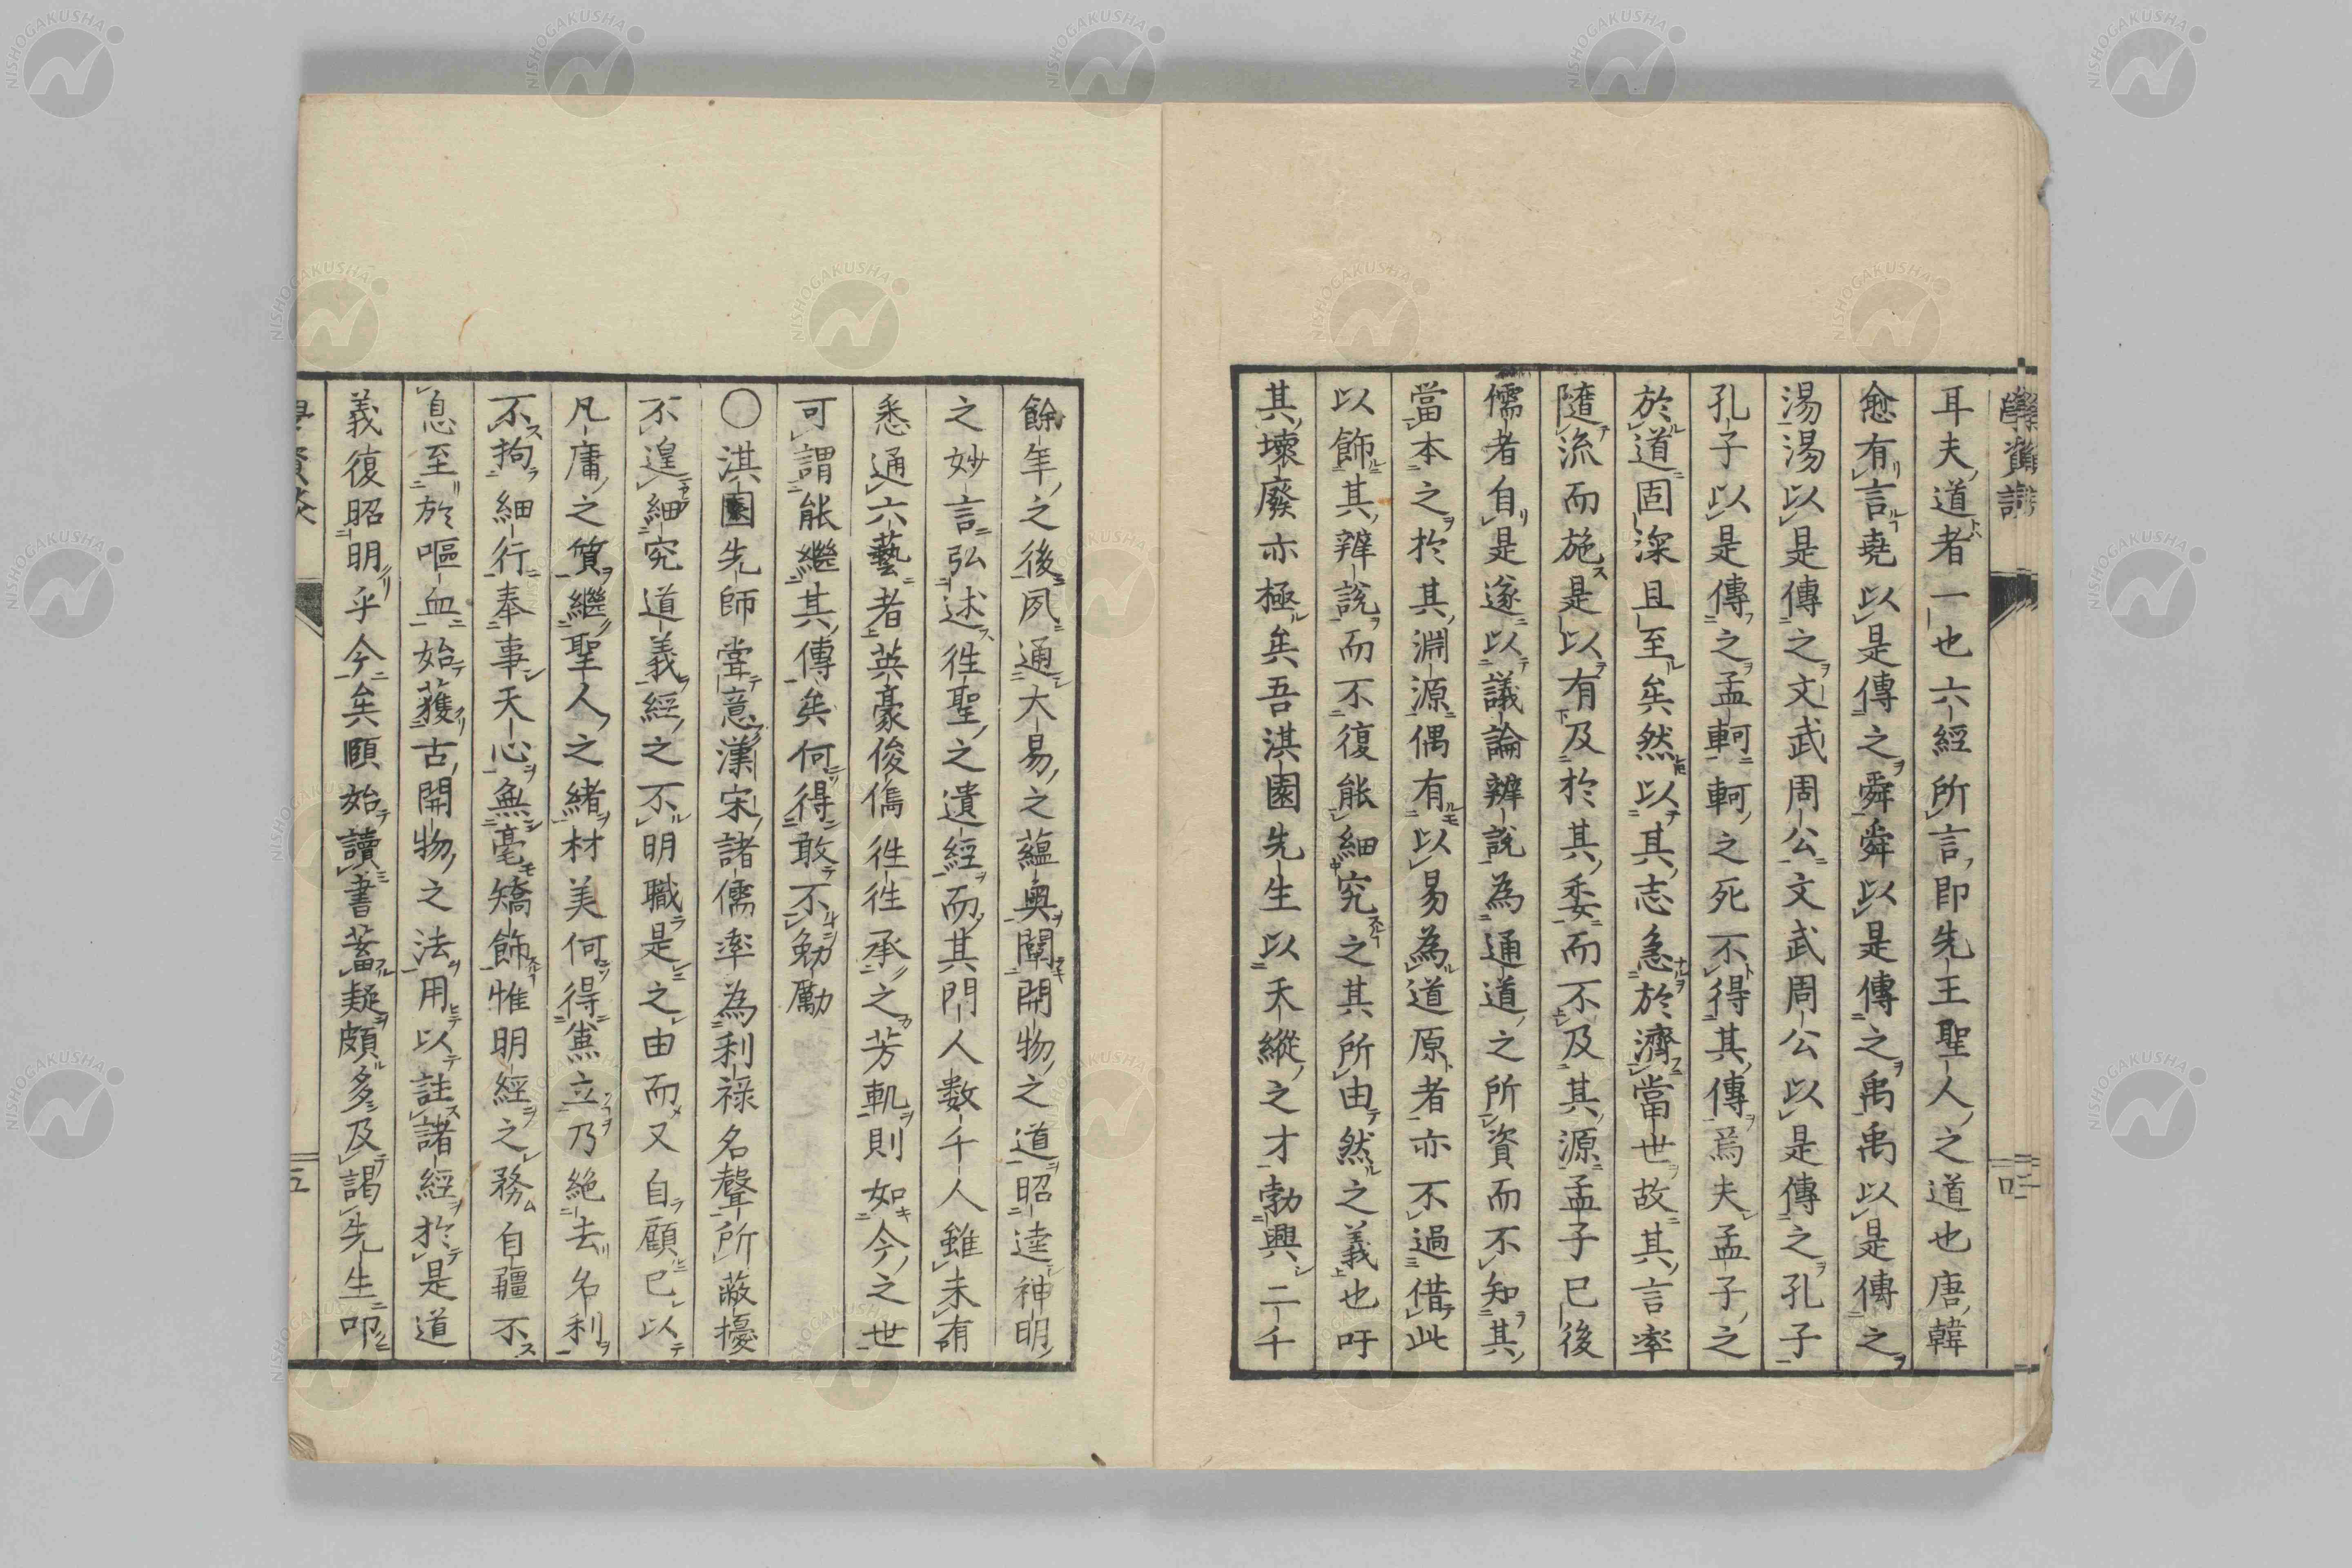 耳夫道者一也六經所言即先王聖人之道也唐韓
愈有言堯以是傳之舜舜以是傳之禹禹以是傳之
湯湯以是傳之文武周公文武周公以是傳之孔子
孔子以是傳之孟軻軻之死不得其傳焉夫孟子之
於道固深且至矣然以其志急於濟當世故其言率
隨流而施是以有及於其委而不及其源孟子已後
儒者自是遂以議論辨說為通道之所資而不知其
當本之於其淵源偶有以易為道原者亦不過借此
以飾其辨說而不復能細究之其所由然之義也吁
其壞廢亦極矣吾淇園先生以天縱之才勃興二千
餘年之後夙通大易之蘊奧闡開物之道昭達神明
之妙言弘述徃聖之遺經而其門人数千人雖未有
悉通六藝者英豪俊儁徃徃承之芳軌則如今之世
可謂能繼其傳矣何得敢不勉勵
〇淇園先師嘗意漢宋諸儒率為利祿名聲所蔽擾
不遑細究道義經之不明職是之由而又自顧已以
凡庸之質繼聖人之緒材美何得儻立乃絶去名利
不拘細行奉事天心無毫矯飾惟明經之務自彊不
息至於嘔血始獲古開物之法用以註諸經於是道
義復昭明乎今矣願始讀書蓄疑頗多及謁先生叩
學資談
四
五
NISHOGAKUSHA